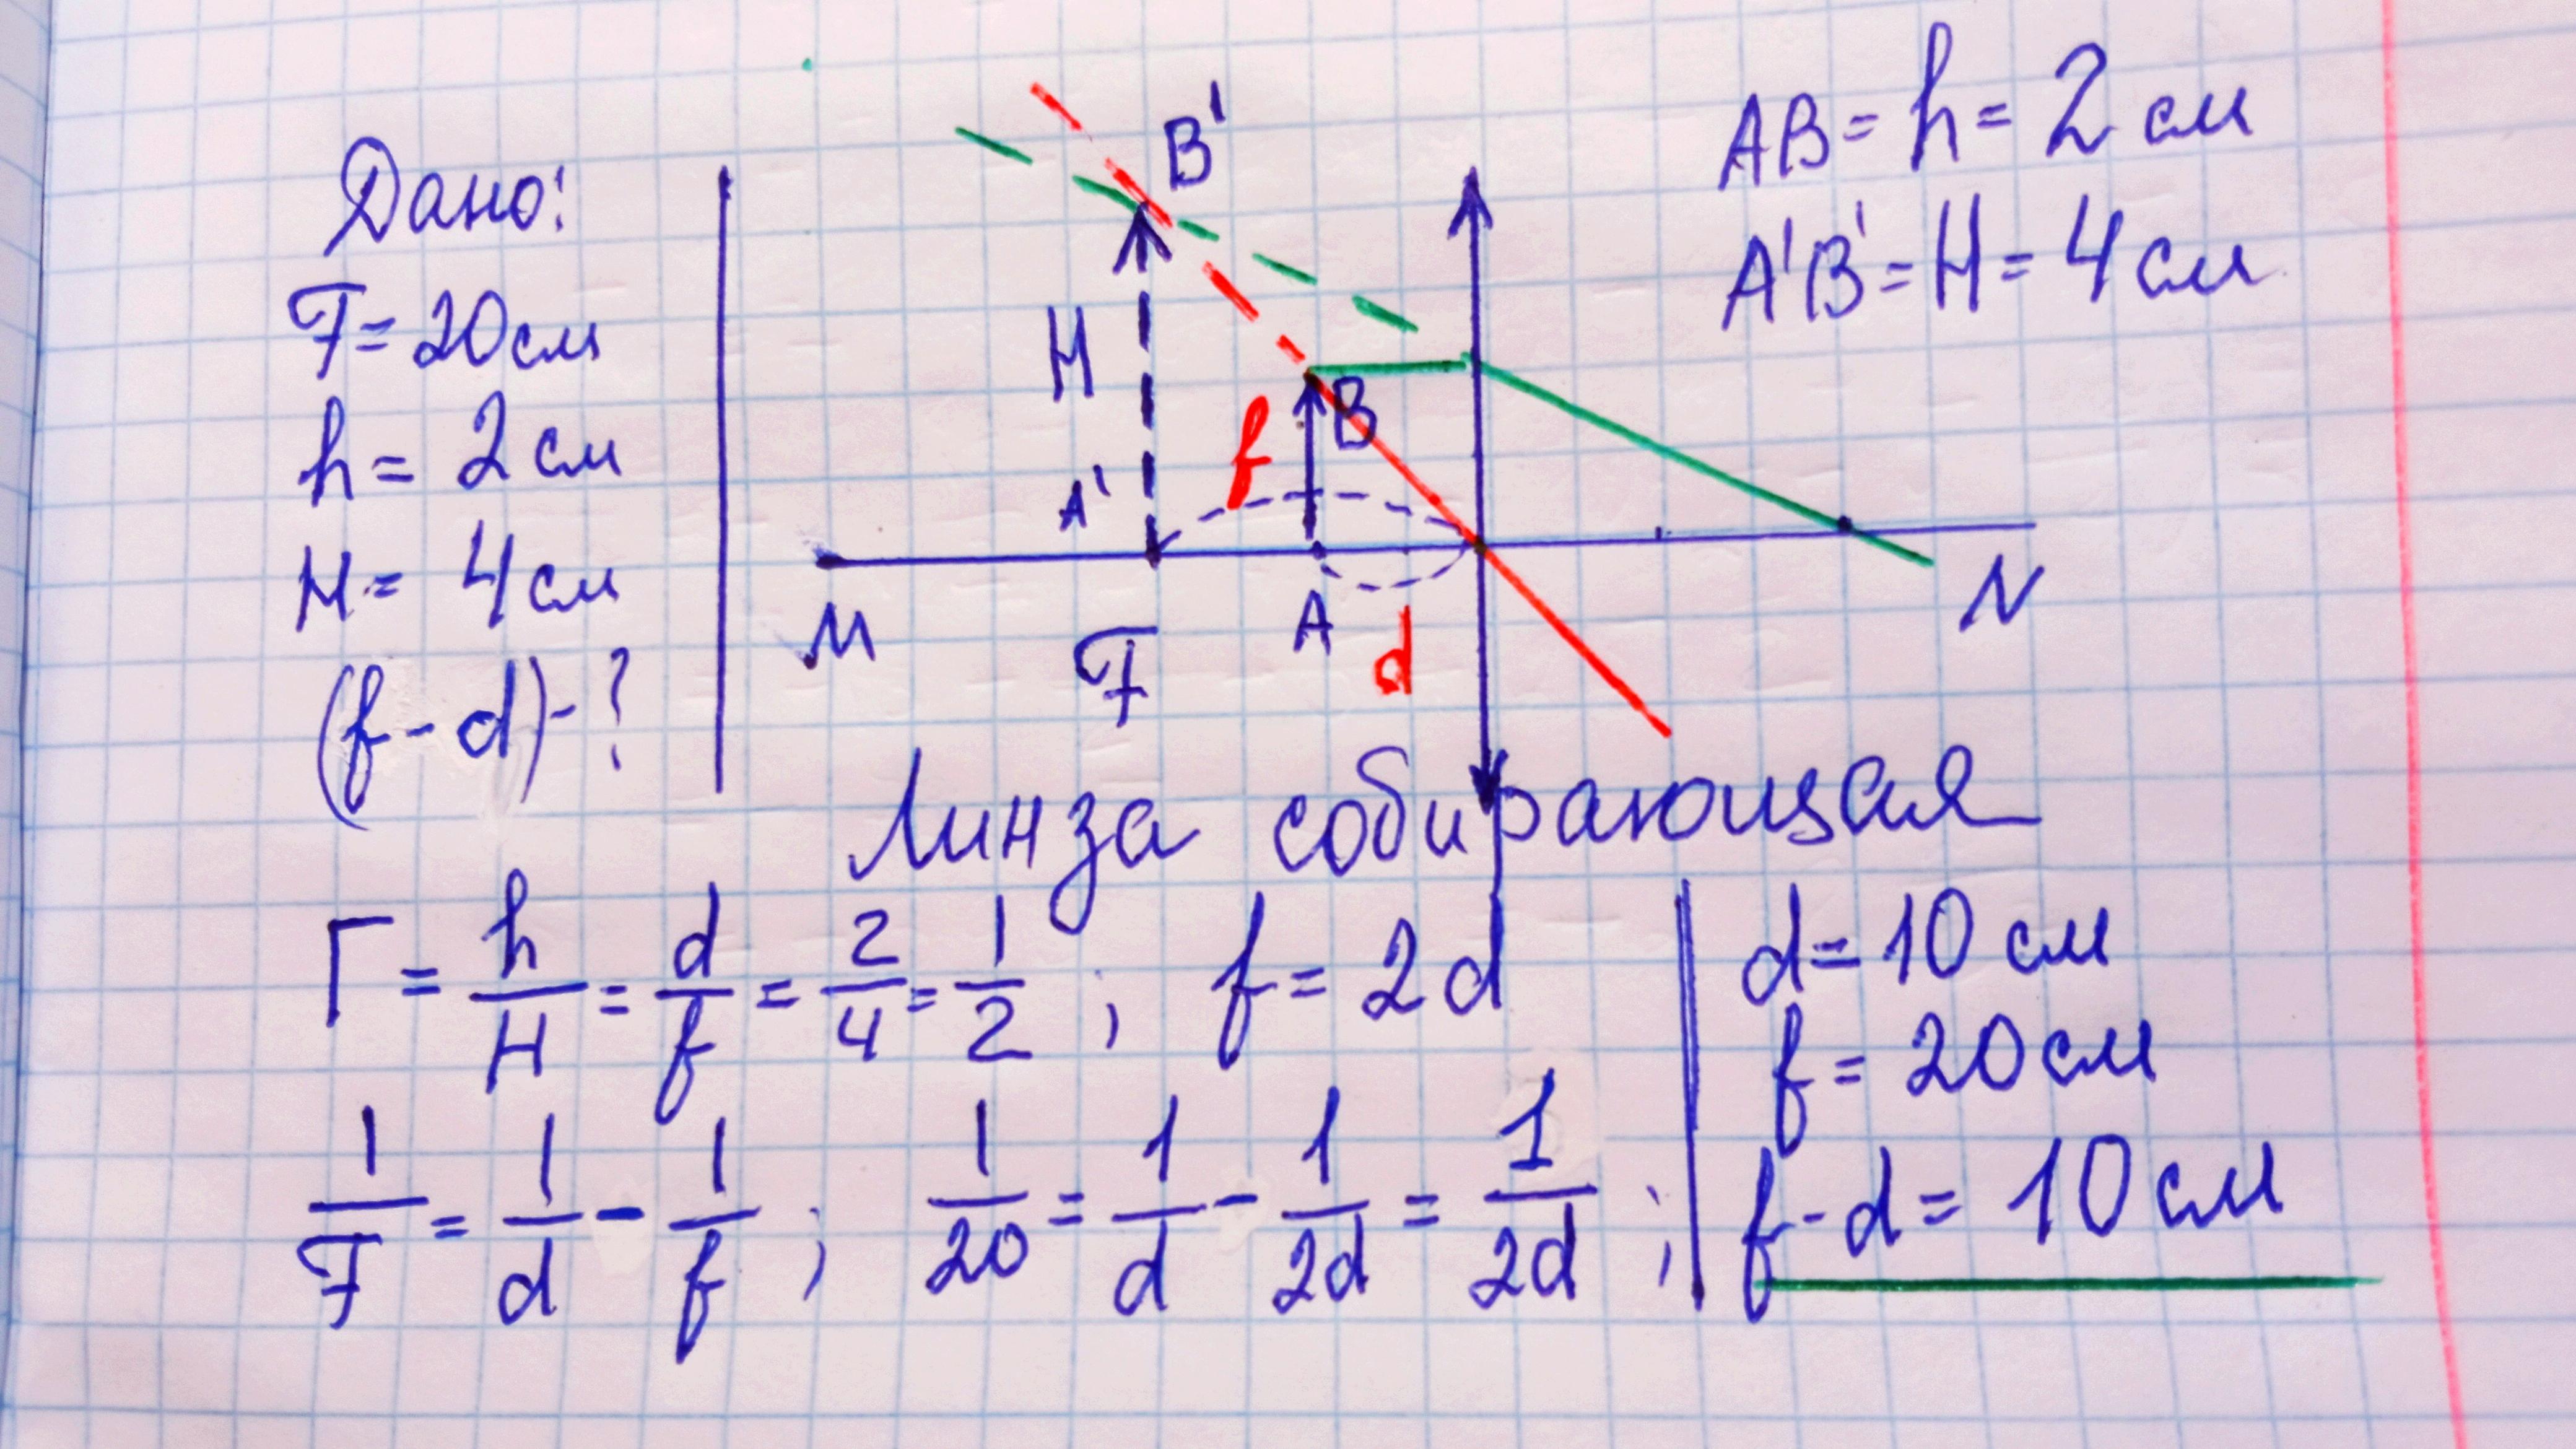 Дано:
F = 20 см
h = 2 см
H = 4 см
(f - d) - ?
B'
H
A'
f
B
M
F
A
d
N
AB = h = 2 см
A'B' = H = 4 см
Линза собирающая
Г = h/H = d/f = 2/4 = 1/2 ; f = 2d
1/F = 1/d - 1/f ; 1/20 = 1/d - 1/2d = 1/2d ;
d = 10 см
f = 20 см
f - d = 10 см